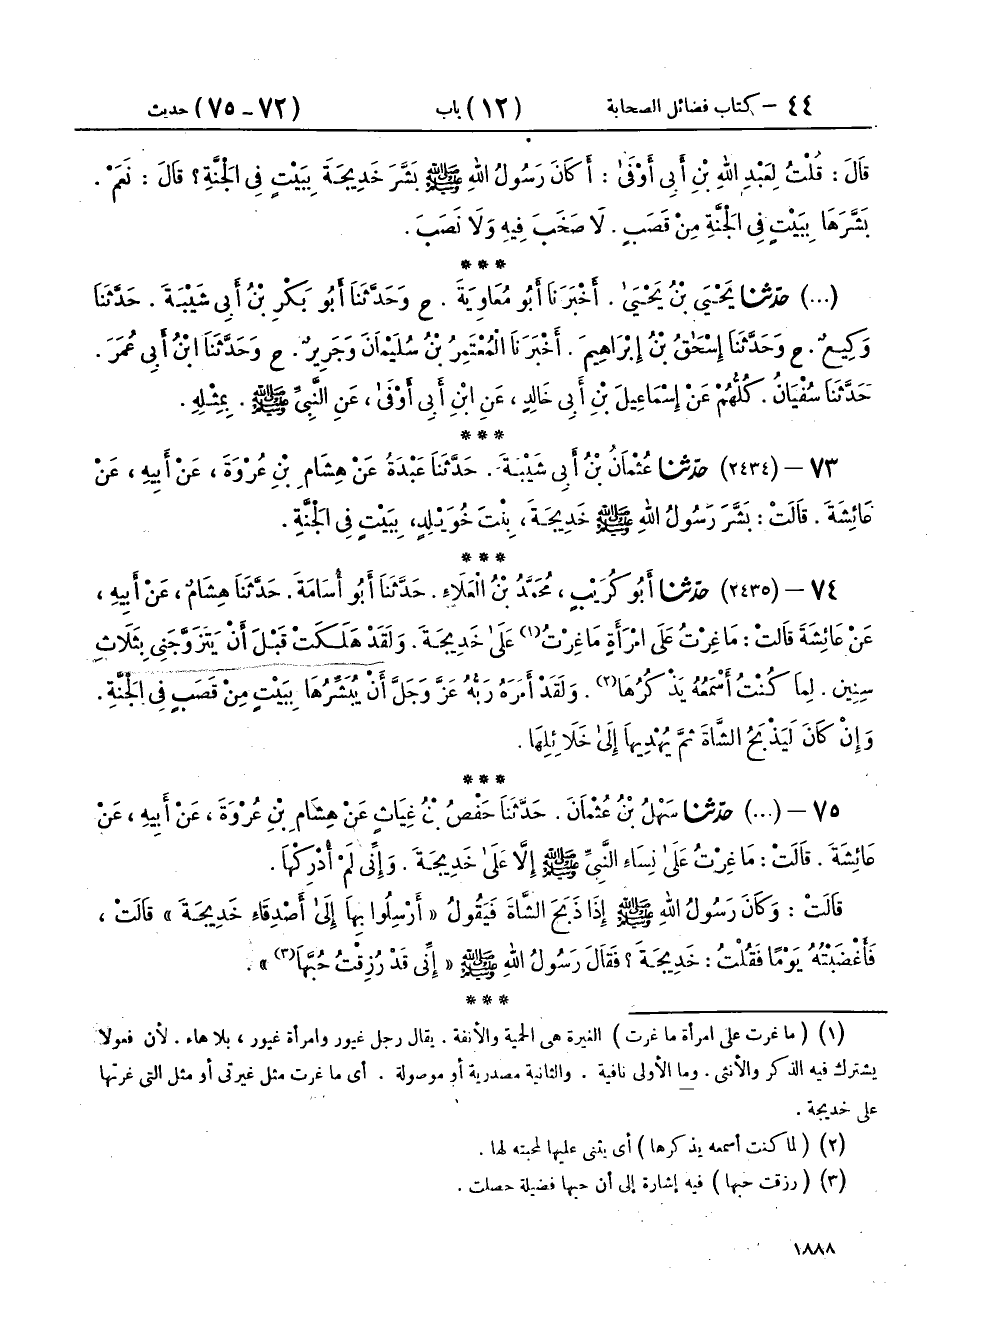 ٤٤ – كتاب فضائل الصحابة (١٢) باب (٧٢ – ٧٥) حديث
قَالَ : قُلْتُ لِعَبْدِ اللهِ بْنِ أَبِي أَوْفَىٰ : أَكَانَ رَسُولُ اللهِ ﷺ بَشَّرَ خَدِيجَةَ بِبَيْتٍ فِي الْجَنَّةِ ؟ قَالَ : نَعَمْ .
بَشَّرَهَا بِبَيْتٍ فِي الْجَنَّةِ مِنْ قَصَبٍ . لَا صَخَبَ فِيهِ وَلَا نَصَبَ .
* * *
(...) حدّثنا يَحْيَىٰ بْنُ يَحْيَىٰ . أَخْبَرَنَا أَبُو مُعَاوِيَةَ . ح وَحَدَّثَنَا أَبُو بَكْرِ بْنُ أَبِي شَيْبَةَ . حَدَّثَنَا
وَكِيعٌ . ح وَحَدَّثَنَا إِسْحَٰقُ بْنُ إِبْرَاهِيمَ . أَخْبَرَنَا الْمُعْتَمِرُ بْنُ سُلَيْمَانَ وَجَرِيرٌ . ح وَحَدَّثَنَا ابْنُ أَبِي عُمَرَ .
حَدَّثَنَا سُفْيَانُ . كُلُّهُمْ عَنْ إِسْمَاعِيلَ بْنِ أَبِي خَالِدٍ ، عَنِ ابْنِ أَبِي أَوْفَىٰ ، عَنِ النَّبِيِّ ﷺ . بِمِثْلِهِ .
* * *
٧٣ – (٢٤٣٤) حدّثنا عُثْمَانُ بْنُ أَبِي شَيْبَةَ . حَدَّثَنَا عَبْدَةُ عَنْ هِشَامِ بْنِ عُرْوَةَ ، عَنْ أَبِيهِ ، عَنْ
عَائِشَةَ . قَالَتْ : بَشَّرَ رَسُولُ اللهِ ﷺ خَدِيجَةَ ، بِنْتَ خُوَيْلِدٍ ، بِبَيْتٍ فِي الْجَنَّةِ .
* * *
٧٤ – (٢٤٣٥) حدّثنا أَبُو كُرَيْبٍ ، مُحَمَّدُ بْنُ الْعَلَاءِ . حَدَّثَنَا أَبُو أُسَامَةَ . حَدَّثَنَا هِشَامٌ ، عَنْ أَبِيهِ ،
عَنْ عَائِشَةَ قَالَتْ : مَا غِرْتُ عَلَى امْرَأَةٍ مَا غِرْتُ(١) عَلَىٰ خَدِيجَةَ . وَلَقَدْ هَلَكَتْ قَبْلَ أَنْ يَتَزَوَّجَنِي بِثَلَاثِ
سِنِينَ . لِمَا كُنْتُ أَسْمَعُهُ يَذْكُرُهَا(٢) . وَلَقَدْ أَمَرَهُ رَبُّهُ عَزَّ وَجَلَّ أَنْ يُبَشِّرَهَا بِبَيْتٍ مِنْ قَصَبٍ فِي الْجَنَّةِ .
وَإِنْ كَانَ لَيَذْبَحُ الشَّاةَ ثُمَّ يُهْدِيهَا إِلَىٰ خَلَائِلِهَا .
* * *
٧٥ – (...) حدّثنا سَهْلُ بْنُ عُثْمَانَ . حَدَّثَنَا حَفْصُ بْنُ غِيَاثٍ عَنْ هِشَامِ بْنِ عُرْوَةَ ، عَنْ أَبِيهِ ، عَنْ
عَائِشَةَ . قَالَتْ : مَا غِرْتُ عَلَىٰ نِسَاءِ النَّبِيِّ ﷺ إِلَّا عَلَىٰ خَدِيجَةَ . وَإِنِّي لَمْ أُدْرِكْهَا .
قَالَتْ : وَكَانَ رَسُولُ اللهِ ﷺ إِذَا ذَبَحَ الشَّاةَ فَيَقُولُ « أَرْسِلُوا بِهَا إِلَىٰ أَصْدِقَاءِ خَدِيجَةَ » قَالَتْ ،
فَأَغْضَبْتُهُ يَوْمًا فَقُلْتُ : خَدِيجَةَ ؟ فَقَالَ رَسُولُ اللهِ ﷺ « إِنِّي قَدْ رُزِقْتُ حُبَّهَا(٣) » .
* * *
(١) ( ما غرت على امرأة ما غرت ) الغيرة هي الحمية والأنفة . يقال رجل غيور وامرأة غيور ، بلا هاء . لأن فعولا
يشترك فيه الذكر والأنثى . وما الأولى نافية . والثانية مصدرية أو موصولة . أى ما غرت مثل غيرتى أو مثل التى غرتها
على خديجة .
(٢) ( لما كنت أسمعه يذكرها ) أى يثنى عليها لمحبته لها .
(٣) ( رزقت حبها ) فيه إشارة إلى أن حبها فضيلة حصلت .
١٨٨٨